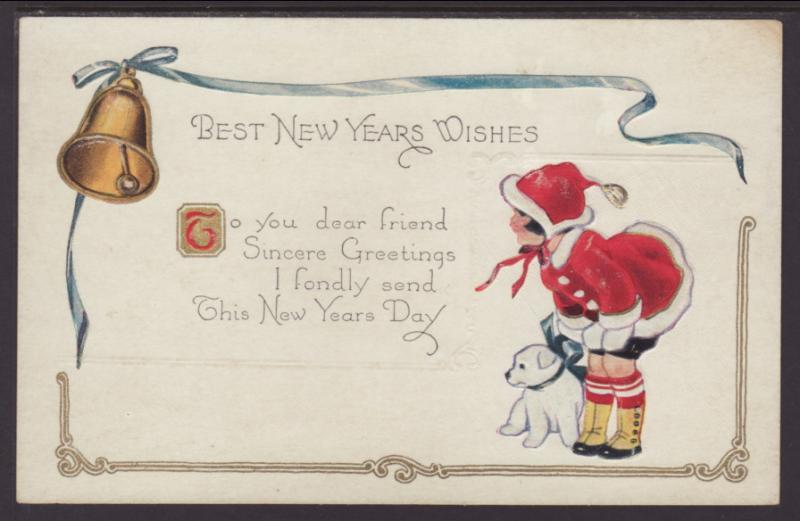 BEST NEW YEARS WISHES
To you dear friend
Sincere Greetings
I fondly send
This New Years Day